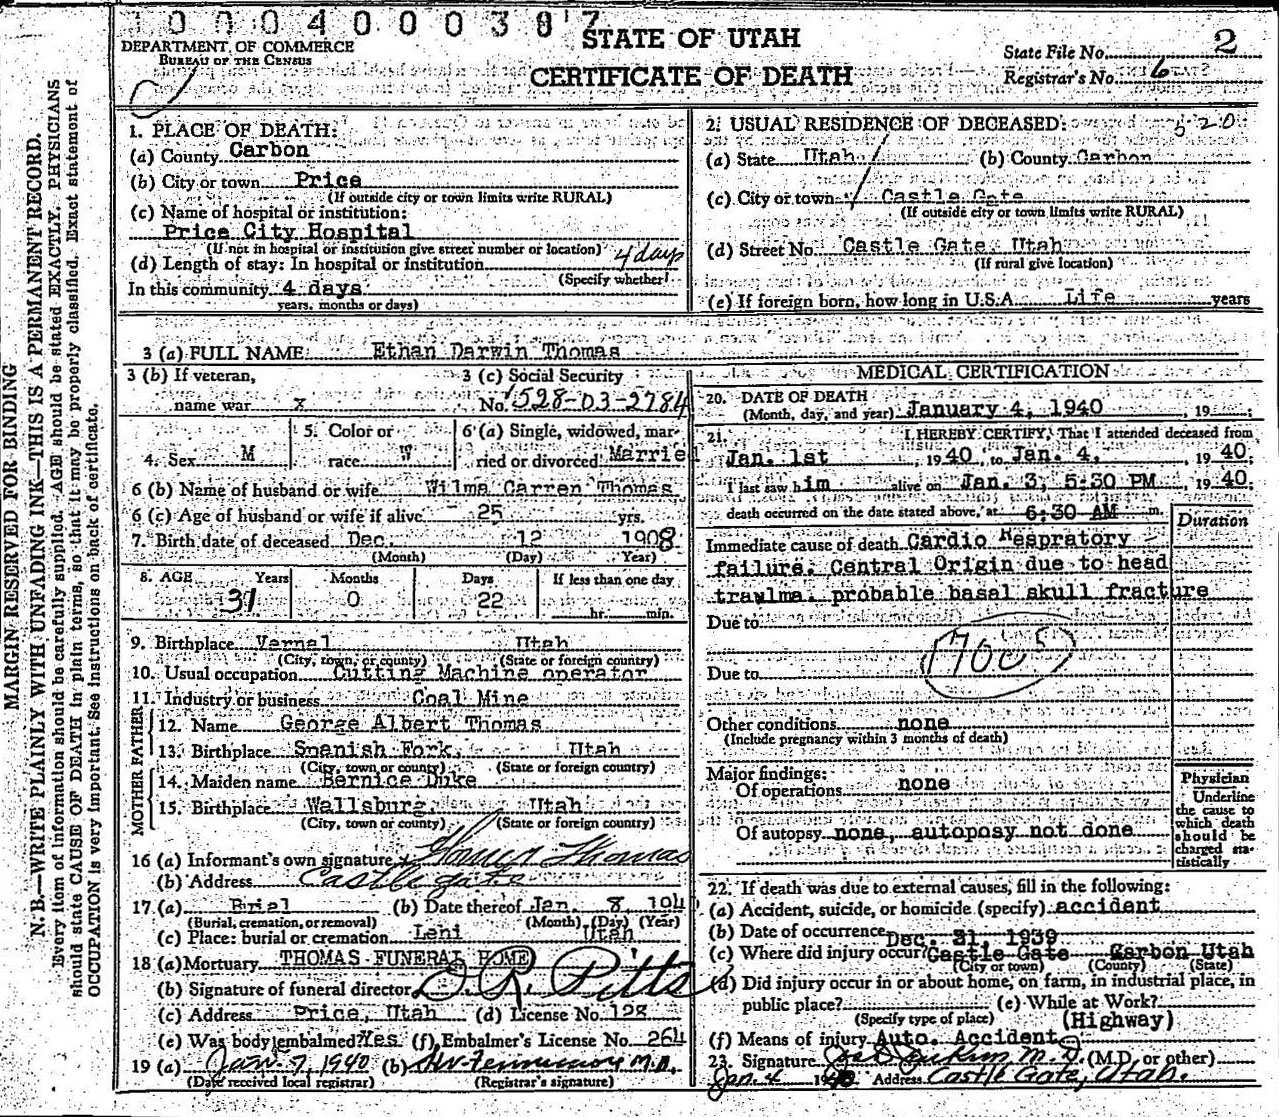 1 0 0 4 0 0 0 3 8 7
STATE OF UTAH
CERTIFICATE OF DEATH
DEPARTMENT OF COMMERCE
BUREAU OF THE CENSUS
State File No. 2
Registrar's No. 6
MARGIN RESERVED FOR BINDING
N. B.—WRITE PLAINLY WITH UNFADING INK—THIS IS A PERMANENT RECORD.
Every item of information should be carefully supplied. AGE should be stated EXACTLY. PHYSICIANS
should state CAUSE OF DEATH in plain terms, so that it may be properly classified. Exact statement of
OCCUPATION is very important. See instructions on back of certificate.
1. PLACE OF DEATH:
(a) County Carbon
(b) City or town Price
(If outside city or town limits write RURAL)
(c) Name of hospital or institution:
Price City Hospital
(If not in hospital or institution give street number or location)
(d) Length of stay: In hospital or institution 4 days
(Specify whether
In this community 4 days
years, months or days)
2. USUAL RESIDENCE OF DECEASED: 520
(a) State Utah (b) County Carbon
(c) City or town Castle Gate
(If outside city or town limits write RURAL)
(d) Street No. Castle Gate, Utah
(If rural give location)
(e) If foreign born, how long in U.S.A. Life years
3 (a) FULL NAME: Ethan Darwin Thomas
3 (b) If veteran,
name war x
3 (c) Social Security
No. 528-03-2784
4. Sex M
5. Color or
race W
6 (a) Single, widowed, mar-
ried or divorced Married
6 (b) Name of husband or wife Wilma Carren Thomas
6 (c) Age of husband or wife if alive 25 yrs.
7. Birth date of deceased Dec. 12 1908
(Month) (Day) (Year)
8. AGE Years Months Days If less than one day
31 0 22 hr. min.
9. Birthplace Vernal Utah
(City, town, or county) (State or foreign country)
10. Usual occupation Cutting Machine operator
11. Industry or business Coal Mine
FATHER
12. Name George Albert Thomas
13. Birthplace Spanish Fork, Utah
(City, town or county) (State or foreign country)
MOTHER
14. Maiden name Bernice Duke
15. Birthplace Wallsburg, Utah
(City, town or county) (State or foreign country)
16 (a) Informant's own signature Thomas
(b) Address Castle gate
17 (a) Brial (b) Date thereof Jan. 8, 194
(Burial, cremation, or removal) (Month) (Day) (Year)
(c) Place: burial or cremation Lehi Utah
18 (a) Mortuary THOMAS FUNERAL HOME
(b) Signature of funeral director D. R. Pitts
(c) Address Price, Utah (d) License No. 128
(e) Was body embalmed? Yes. (f) Embalmer's License No. 264
19 (a) Jan. 7, 1940 (b) M.D.
(Date received local registrar) (Registrar's signature)
MEDICAL CERTIFICATION
20. DATE OF DEATH
(Month, day, and year) January 4, 1940, 19
21. I HEREBY CERTIFY, That I attended deceased from
Jan. 1st, 1940, to Jan. 4, 1940;
I last saw him alive on Jan. 3, 5:30 PM, 1940;
death occurred on the date stated above, at 6:30 AM m.
Duration
Immediate cause of death Cardio Respratory -
failure. Central Origin due to head
traulma. probable basal skull fracture
Due to
170c 5
Due to
Other conditions none
(Include pregnancy within 3 months of death)
Major findings:
Of operations none
Of autopsy none, autoposy not done
Physician
Underline
the cause to
which death
should be
charged sta-
tistically
22. If death was due to external causes, fill in the following:
(a) Accident, suicide, or homicide (specify) accident
(b) Date of occurrence Dec. 31, 1939
(c) Where did injury occur? Castle Gate Carbon Utah
(City or town) (County) (State)
(d) Did injury occur in or about home, on farm, in industrial place, in
public place? (e) While at Work?
(Specify type of place) (Highway)
(f) Means of injury Auto. Accident
23. Signature M. D. (M.D. or other)
Jan. 4 19 Address Castle Gate, Utah.